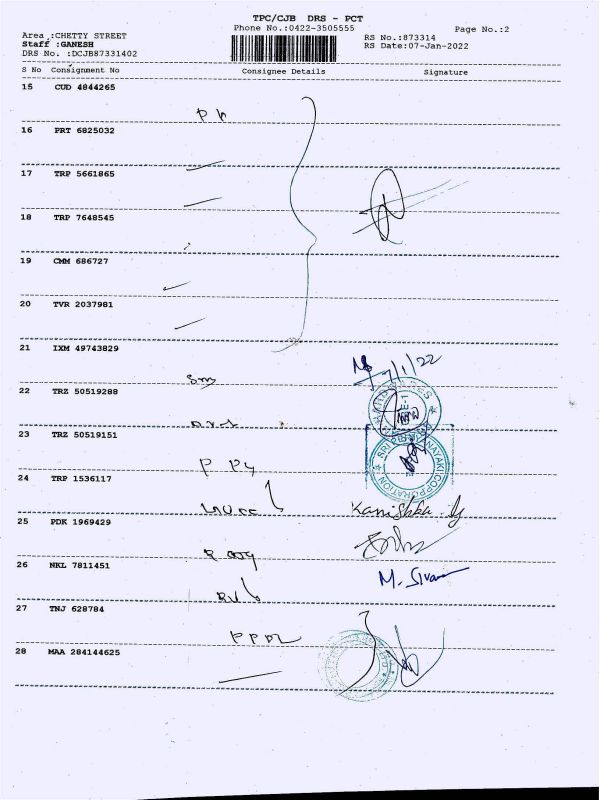 TPC/CJB DRS - PCT
Phone No.:0422-3505555
Page No.:2
Area :CHETTY STREET
RS No.:873314
Staff :GANESH
RS Date:07-Jan-2022
DRS No. :DCJB87331402
S No Consignment No Consignee Details Signature
15 CUD 4844265
16 PRT 6825032
17 TRP 5661865
18 TRP 7648545
19 CMM 686727
20 TVR 2037981
21 IXM 49743829
22 TRZ 50519288
23 TRZ 50519151
24 TRP 1536117
Kanishka
25 PDK 1969429
26 NKL 7811451
M. Sivam
27 TNJ 628784
28 MAA 284144625